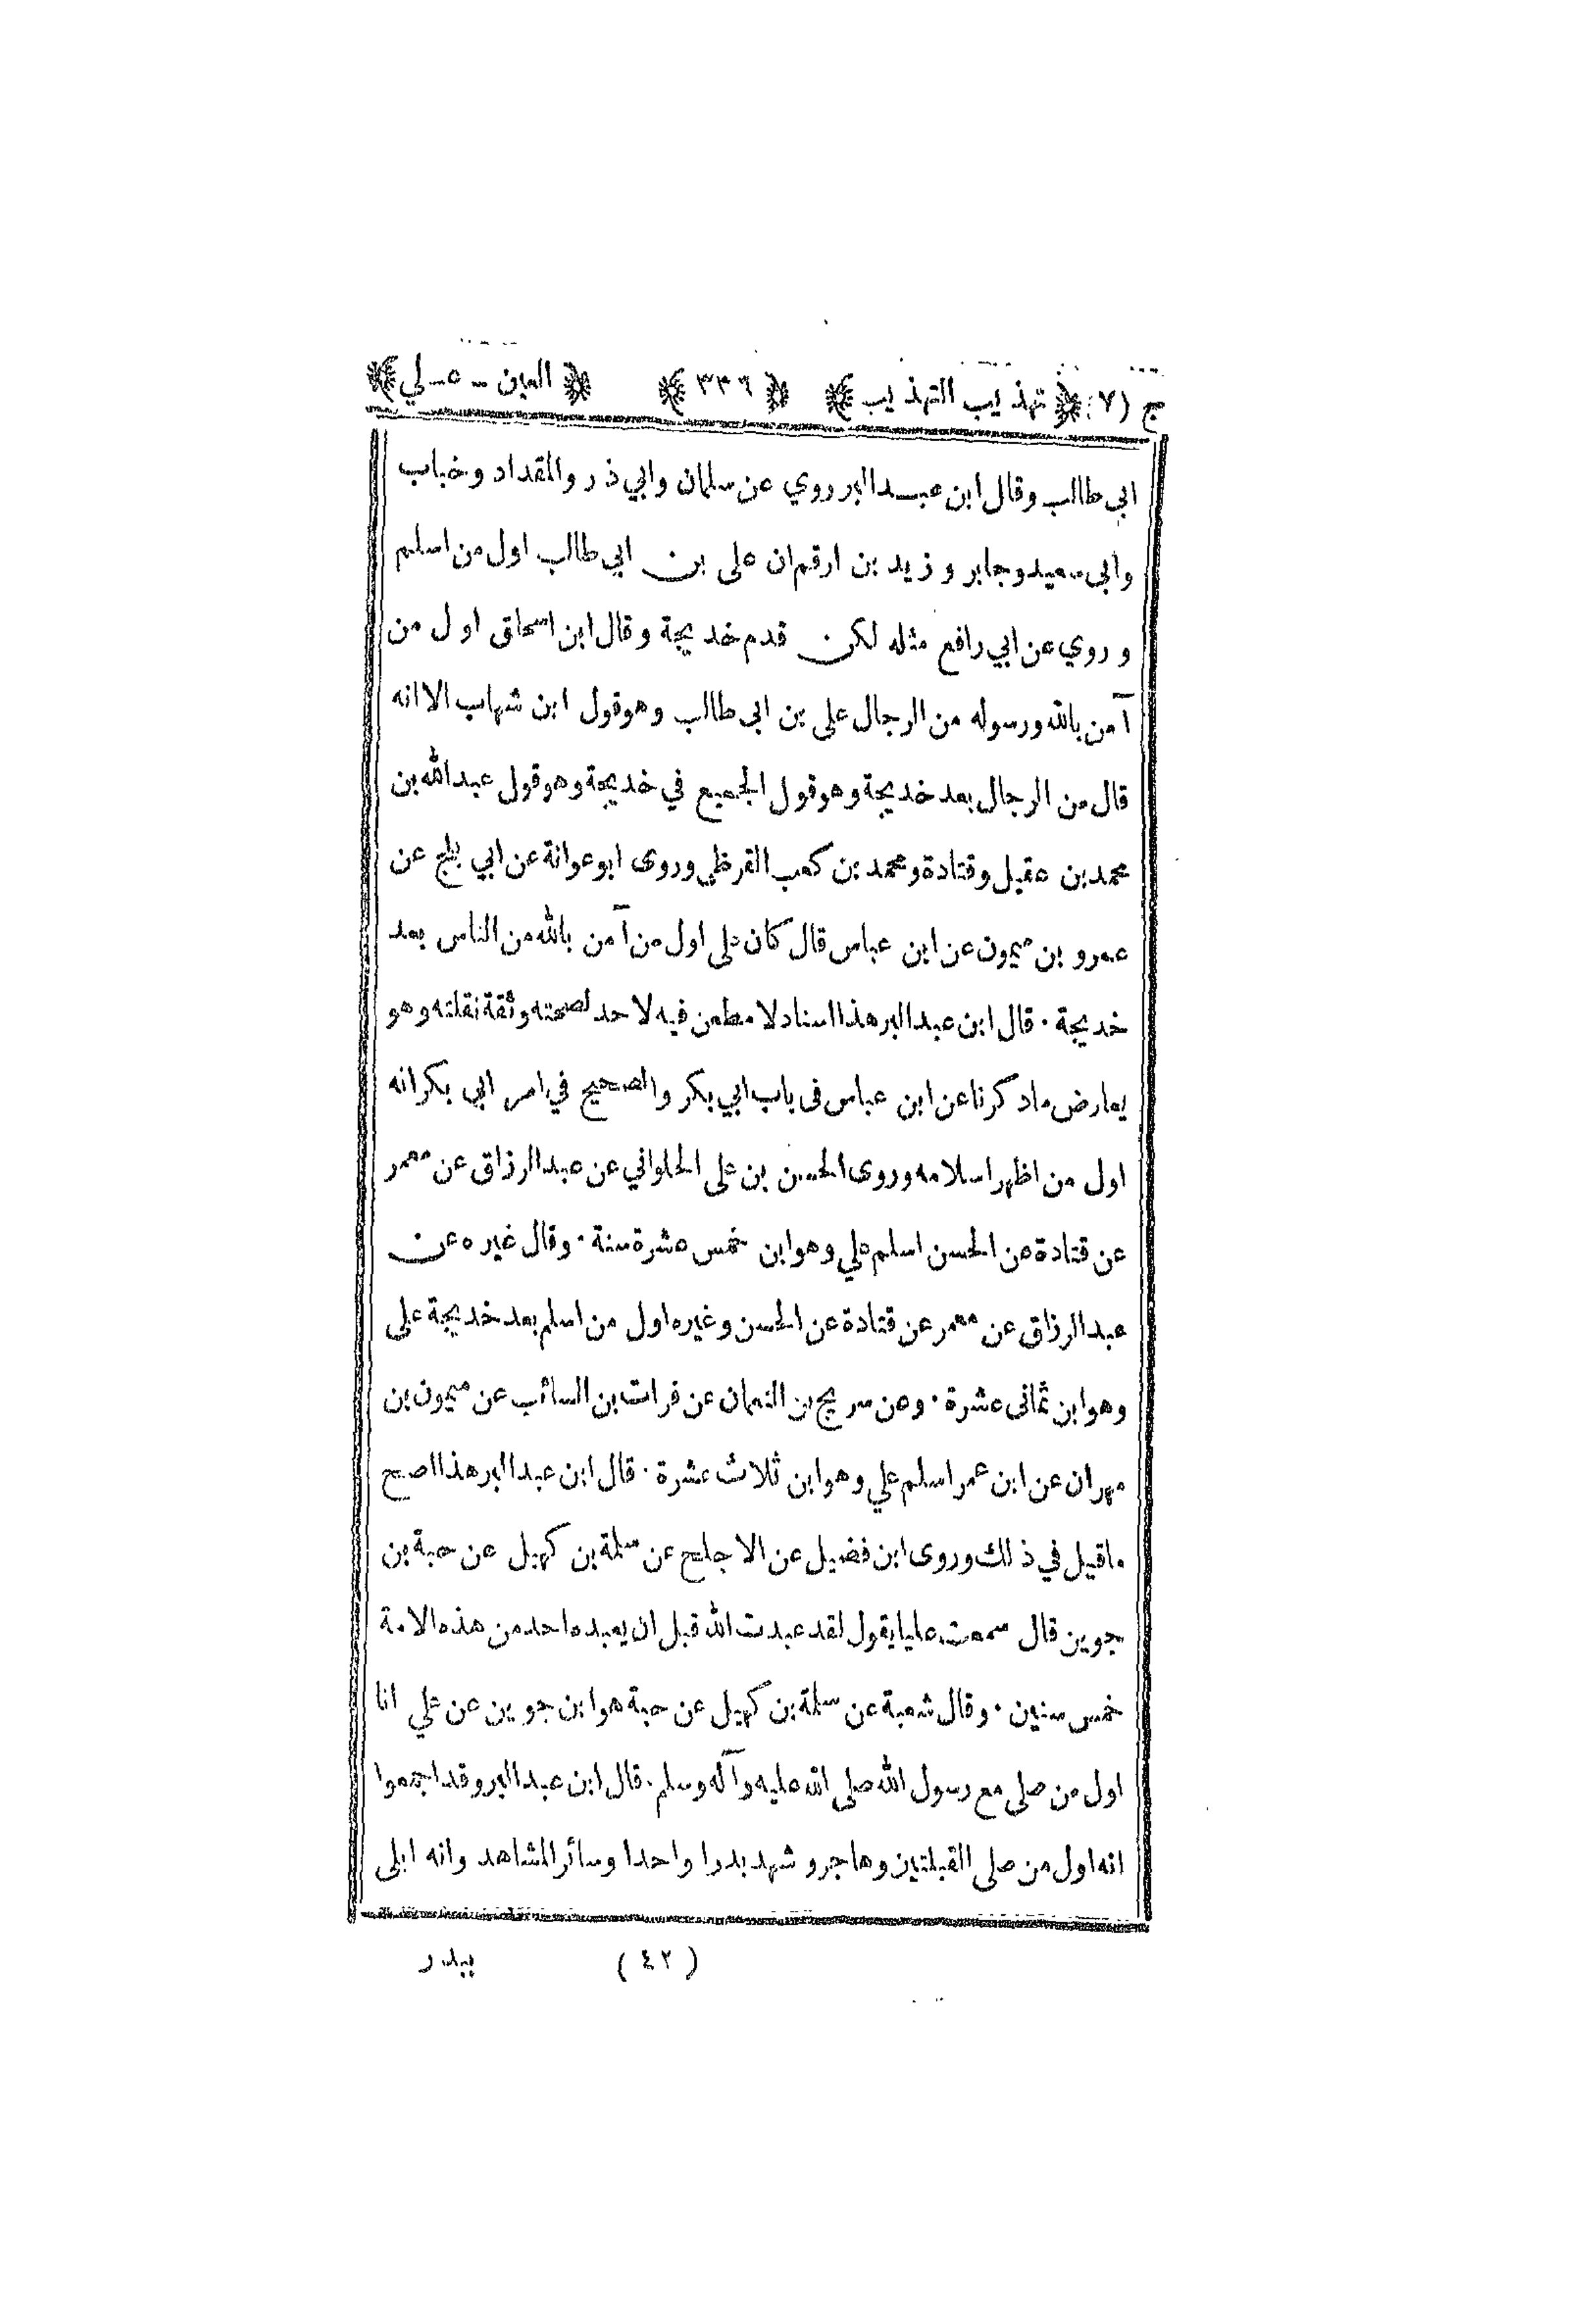 ج (٧) ﴿ تهذيب التهذيب ﴾ ﴿ ٣٣٦ ﴾ ﴿ العين - علي ﴾
ابي طالب وقال ابن عبد البر روي عن سلمان وابي ذر والمقداد وخباب
وابي سعيد وجابر وزيد بن ارقم ان علي بن ابي طالب اول من اسلم
وروي عن ابي رافع مثله لكن قدم خديجة وقال ابن اسحاق اول من
آمن بالله ورسوله من الرجال علي بن ابي طالب وهو قول ابن شهاب الا انه
قال من الرجال بعد خديجة وهو قول الجميع في خديجة وهو قول عبد الله بن
محمد بن عقيل وقتادة ومحمد بن كعب القرظي وروى ابو عوانة عن ابي بلج عن
عمرو بن ميمون عن ابن عباس قال كان علي اول من آمن بالله من الناس بعد
خديجة ٠ قال ابن عبد البر هذا اسناد لا مطعن فيه لاحد لصحته وثقة نقلته وهو
يعارض ماد كرنا عن ابن عباس في باب ابي بكر والصحيح في امر ابي بكر انه
اول من اظهر اسلامه وروى الحسن بن علي الحلواني عن عبد الرزاق عن معمر
عن قتادة عن الحسن اسلم علي وهو ابن خمس عشرة سنة ٠ وقال غيره عن
عبد الرزاق عن معمر عن قتادة عن الحسن وغيره اول من اسلم بعد خديجة علي
وهو ابن ثماني عشرة ٠ وعن سريج بن النعمان عن فرات بن السائب عن ميمون بن
مهران عن ابن عمر اسلم علي وهو ابن ثلاث عشرة ٠ قال ابن عبد البر هذا اصح
ماقيل في ذلك وروى ابن فضيل عن الاجلح عن سلمة بن كهيل عن حبة بن
جوين قال سمعت عليا يقول لقد عبدت الله قبل ان يعبده احد من هذه الامة
خمس سنين ٠ وقال شعبة عن سلمة بن كهيل عن حبة هو ابن جوين عن علي انا
اول من صلى مع رسول الله صلى الله عليه وآله وسلم ٠ قال ابن عبد البر وقد اجمعوا
انه اول من صلى القبلتين وهاجر وشهد بدرا واحدا وسائر المشاهد وانه ابلى
(٤٢) ببدر